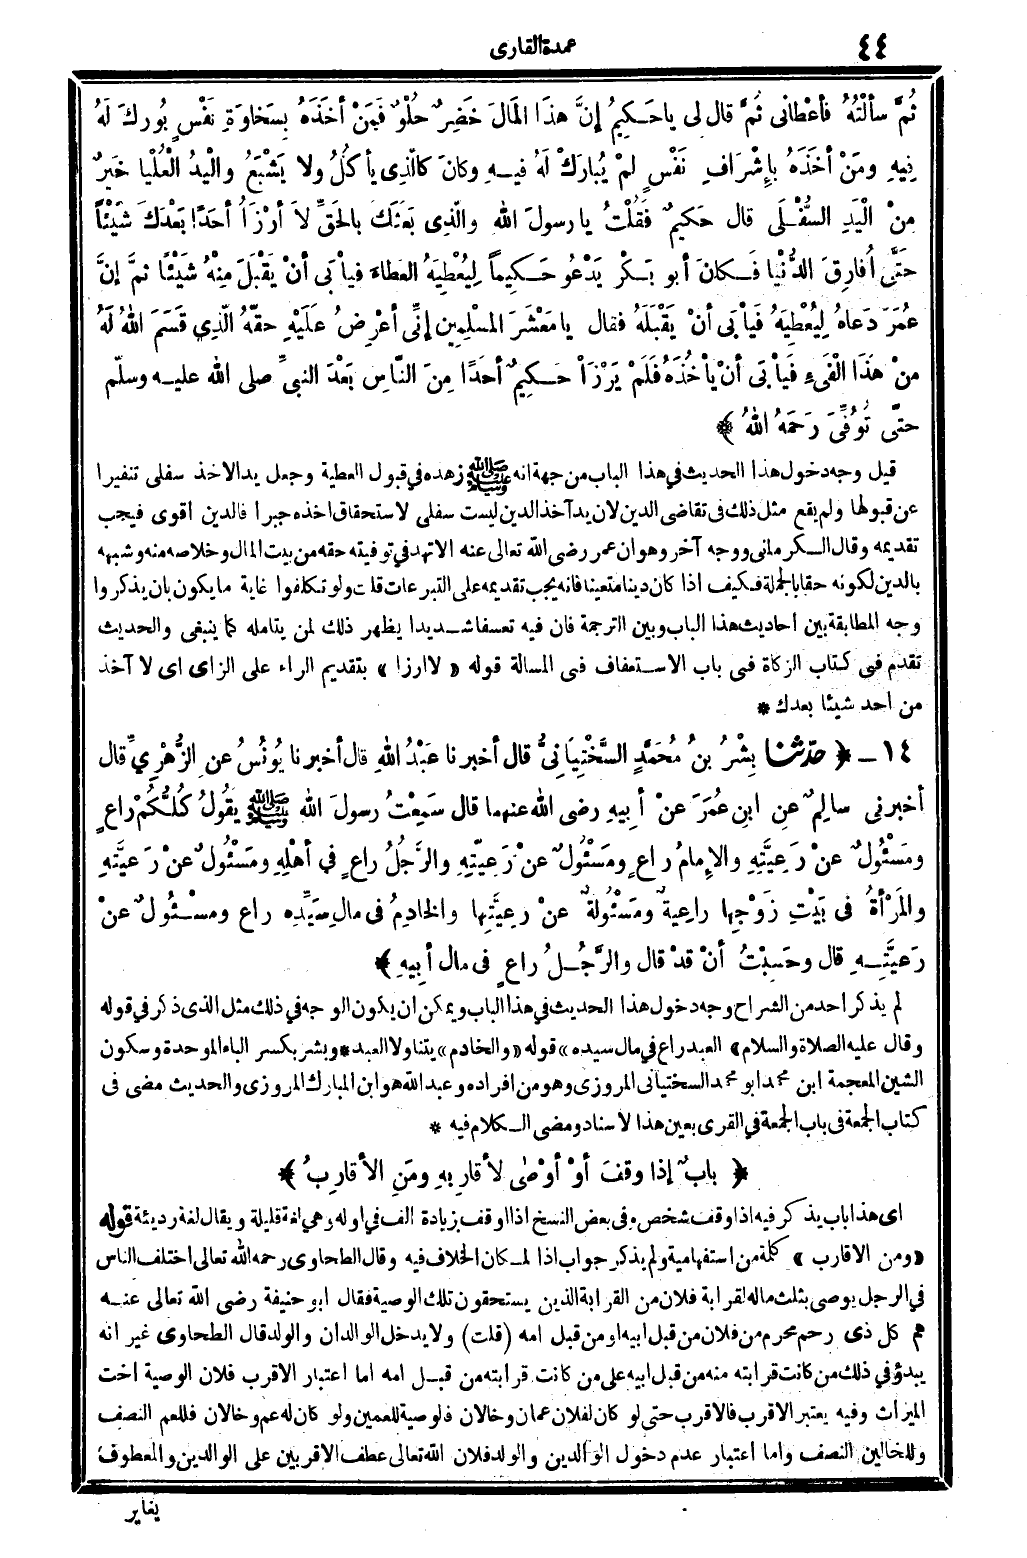 ٤٤
عمدة القارى
ثُمَّ سألْتُهُ فأعْطانى ثُمَّ قال لى ياحَكِيمُ إنَّ هذَا المَالَ خَضِرٌ حُلْوٌ فَمَنْ أخَذَهُ بِسَخاوَةِ نَفْسٍ بُورِكَ لَهُ
فِيهِ ومَنْ أخَذَهُ بإِشْرَافِ نَفْسٍ لمْ يُبارَكْ لَهُ فيهِ وكانَ كالَّذِى يأكُلُ ولا يَشْبَعُ والْيدُ الْعُلْيا خَيرٌ
مِنْ الْيَدِ السُّفْلَى قال حَكيمٌ فَقُلْتُ يا رسولَ اللهِ والَّذِى بَعَثَكَ بالحَقِّ لاَ أرْزَأُ أحَدًا بَعْدَكَ شَيْئاً
حَتَّى أُفارِقَ الدُّنْيا فَكانَ أبو بَكْرٍ يَدْعُو حَكِيماً لِيُعْطِيَهُ العَطاءَ فيأبَى أنْ يَقْبَلَ مِنْهُ شَيْئًا ثمَّ إنَّ
عُمَرَ دَعاهُ لِيُعْطِيَهُ فَيأبَى أنْ يَقْبَلَهُ فقال يا مَعْشَرَ المسلِمِين إنِّى أعْرِضُ عَلَيْهِ حَقَّهُ الَّذِي قَسَمَ اللهُ لَهُ
مِنْ هذَا الْفَىءِ فَيأبَى أنْ يأخُذَهُ فَلَمْ يَرْزَأْ حَكِيمٌ أحَدًا مِنَ النَّاسِ بَعْدَ النبىِّ صلى الله عليه وسلَّم
حتَّى تُوُفِّىَ رَحمَهُ اللهُ ﴾
قيل وجه دخول هذا الحديث في هذا الباب من جهة انه ﷺ زهده فى قبول العطية وجعل يد الاخذ سفلى تنفيرا
عن قبولها ولم يقع مثل ذلك فى تقاضى الدين لان يد آخذ الدين ليست سفلى لاستحقاق اخذه جبرا فالدين اقوى فيجب
تقديمه وقال الكرمانى ووجه آخر وهو ان عمر رضى الله تعالى عنه الاتهد في توفيته حقه من بيت المال وخلاصه منه وشبهه
بالدين لكونه حقا بالجملة فكيف اذا كان دينا متعينا فانه يجب تقديمه على التبرعات قلت ولو تكلفوا غاية ما يكون بان يذكروا
وجه المطابقة بين أحاديث هذا الباب وبين الترجمة فان فيه تعسفا شديدا يظهر ذلك لمن يتامله كما ينبغى والحديث
تقدم فى كتاب الزكاة فى باب الاستعفاف فى المسالة قوله « لا ارزا » بتقديم الراء على الزاى اى لا آخذ
من احد شيئا بعدك *
١٤ ـ ﴿ حدّثنا بِشْرُ بنُ مُحَمَّدٍ السَّخْتِيَانِىُّ قال أخبرنا عَبْدُ اللهِ قال أخبرنا يُونُسُ عنِ الزُّهْرِيِّ قال
أخبرني سالِمٌ عنِ ابنِ عُمَرَ عَنْ أبِيهِ رضى الله عنهما قال سَمِعْتُ رسولَ الله ﷺ يقُولُ كُلُّكُمْ رَاعٍ
ومَسْئُولٌ عنْ رَعِيَّتِهِ والإِمامُ رَاعٍ ومَسْئُولٌ عنْ رَعِيّتِهِ والرَّجُلُ راعٍ في أهْلِهِ ومَسْئُولٌ عنْ رَعيَّتِهِ
والمَرْأةُ فى بَيْتِ زَوْجِها راعِيةٌ ومَسْئُولَةٌ عنْ رعِيَّتِها والخادِمُ فى مالِ سَيِّدِهِ راعٍ ومسْئُولٌ عنْ
رَعِيَّتِهِ قال وحَسِبْتُ أنْ قدْ قال والرَّجُلُ راعٍ فى مال أبيهِ ﴾
لم يذكر احد من الشراح وجه دخول هذا الحديث في هذا الباب ويمكن ان يكون الوجه في ذلك مثل الذى ذكر في قوله
وقال عليه الصلاة والسلام» العبد راع في مال سيده» قوله «والخادم» يتناول العبد * وبشر بكسر الباء الموحدة وسكون
الشين المعجمة ابن محمد ابو محمد السختيانى المروزى وهو من افراده وعبد الله هو ابن المبارك المروزى والحديث مضى فى
كتاب الجمعة فى باب الجمعة في القرى بعين هذا الاسناد ومضى الكلام فيه *
﴿ بابٌ إذا وقَفَ أوْ أوْصٰى لأقارِبِهِ ومَنِ الأقارِبُ ﴾
اى هذا باب يذكر فيه اذا وقف شخص وفى بعض النسخ اذا اوقف بزيادة الف في اوله وهي لغة قليلة ويقال لغة رديئة قوله
«ومن الاقارب» كلمة من استفهامية ولم يذكر جواب اذا لمكان الخلاف فيه وقال الطحاوى رحمه الله تعالى اختلف الناس
في الرجل يوصى بثلث ماله لقرابة فلان من القرابة الذين يستحقون تلك الوصية فقال ابو حنيفة رضى الله تعالى عنه
هم كل ذى رحم محرم من فلان من قبل ابيه او من قبل امه (قلت) ولا يدخل الوالدان والولد قال الطحاوى غير انه
يبدؤ في ذلك من كانت قرابته منه من قبل ابيه على من كانت قرابته من قبل امه اما اعتبار الاقرب فلان الوصية اخت
الميراث وفيه يعتبر الاقرب فالاقرب حتى لو كان لفلان عمان وخالان فلوصية للعمين ولو كان له عم وخالان فللعم النصف
وللخالين النصف واما أعتبار عدم دخول الوالدين والولد فلان الله تعالى عطف الاقربين على الوالدين والمعطوف
يغاير